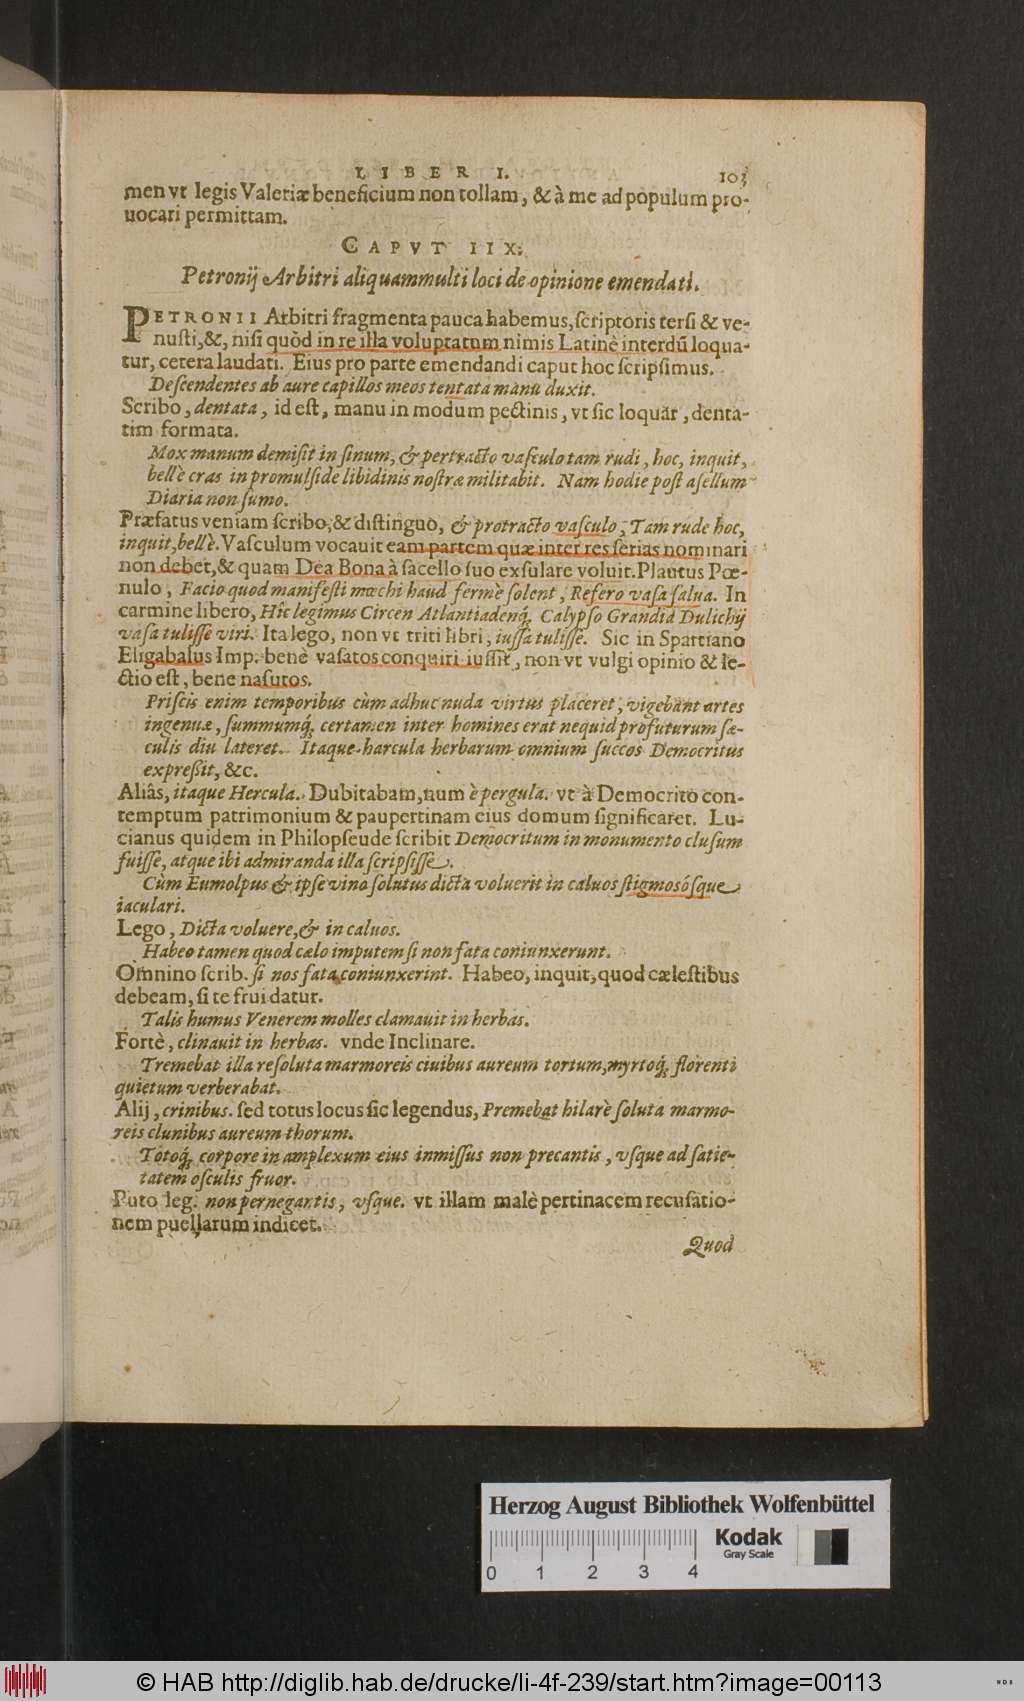 LIBER I. 103
men vt legis Valeriæ beneficium non tollam, & à me ad populum pro-
uocari permittam.
CAPVT IIX.
Petronij Arbitri aliquammulti loci de opinione emendati.
PETRONII Arbitri fragmenta pauca habemus, scriptoris tersi & ve-
nusti, &, nisi quòd in re illa voluptatum nimis Latinè interdū loqua-
tur, cetera laudati. Eius pro parte emendandi caput hoc scripsimus.
Descendentes ab aure capillos meos tentata manu duxit.
Scribo, dentata, id est, manu in modum pectinis, vt sic loquar, denta-
tim formata.
Mox manum demisit in sinum, & pertracto vasculo tam rudi, hoc, inquit,
bellè cras in promulside libidinis nostræ militabit. Nam hodie post asellum
Diaria non sumo.
Præfatus veniam scribo, & distinguo, & protracto vasculo, Tam rude hoc,
inquit, bellè. Vasculum vocauit eam partem quæ inter res serias nominari
non debet, & quam Dea Bona à sacello suo exsulare voluit. Plautus Pœ-
nulo, Facio quod manifesti mœchi haud fermè solent, Refero vasa salua. In
carmine libero, Hîc legimus Circen Atlantiademq́; Calypso Grandia Dulichij
vasa tulisse viri. Ita lego, non vt triti libri, iussa tulisse. Sic in Spartiano
Eligabalus Imp. benè vasatos conquiri iussit, non vt vulgi opinio & le-
ctio est, bene nasutos.
Priscis enim temporibus cùm adhuc nuda virtus placeret, vigebant artes
ingenuæ, summumq́; certamen inter homines erat ne quid profuturum sæ-
culis diu lateret. Itaque harcula herbarum omnium succos Democritus
expreßit, &c.
Aliâs, itaque Hercula. Dubitabam, num è pergula. vt à Democrito con-
temptum patrimonium & paupertinam eius domum significaret. Lu-
cianus quidem in Philopseude scribit Democritum in monumento clusum
fuisse, atque ibi admiranda illa scripsisse.
Cùm Eumolpus & ipse vino solutus dicta voluerit in caluos stigmosósque
iaculari.
Lego, Dicta voluere, & in caluos.
Habeo tamen quod cælo imputem si non fata coniunxerunt.
Omnino scrib. si nos fata coniunxerint. Habeo, inquit, quod cælestibus
debeam, si te frui datur.
Talis humus Venerem molles clamauit in herbas.
Fortè, clinauit in herbas. vnde Inclinare.
Tremebat illa resoluta marmoreis ciuibus aureum tortum, myrtoq́; florenti
quietum verberabat.
Alij, crinibus. sed totus locus sic legendus, Premebat hilarè soluta marmo-
reis clunibus aureum thorum.
Totoq́; corpore in amplexum eius inmissus non precantis, vsque ad satie-
tatem osculis fruor.
Puto leg. non pernegantis, vsque. vt illam malè pertinacem recusatio-
nem puellarum indicet.
Quod
Herzog August Bibliothek Wolfenbüttel
Kodak
Gray Scale
0 1 2 3 4
© HAB http://diglib.hab.de/drucke/li-4f-239/start.htm?image=00113